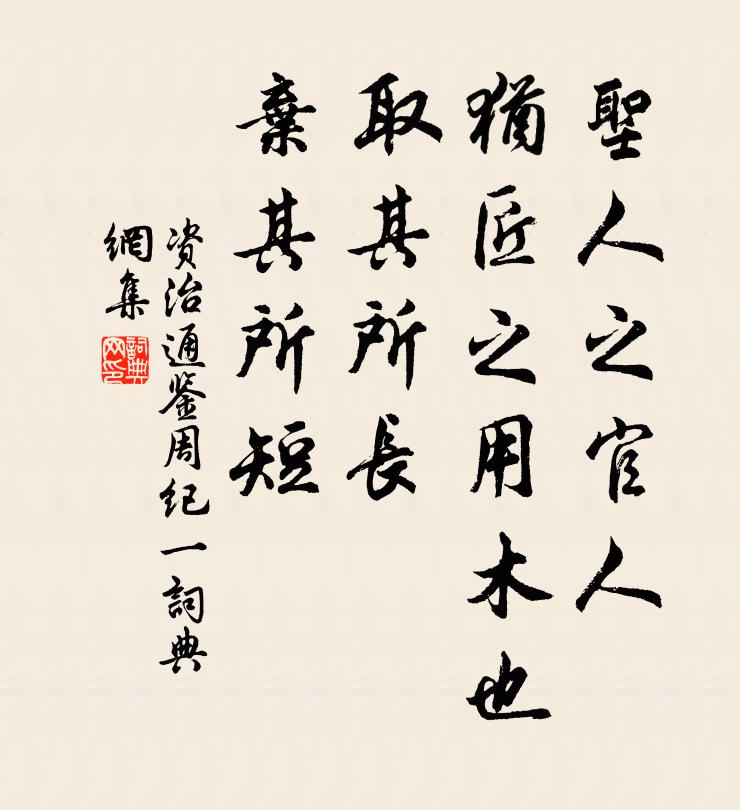 聖人之官人
猶匠之用木也
取其所長
棄其所短
資治通鉴周纪一詞典
網集
詞典
网印